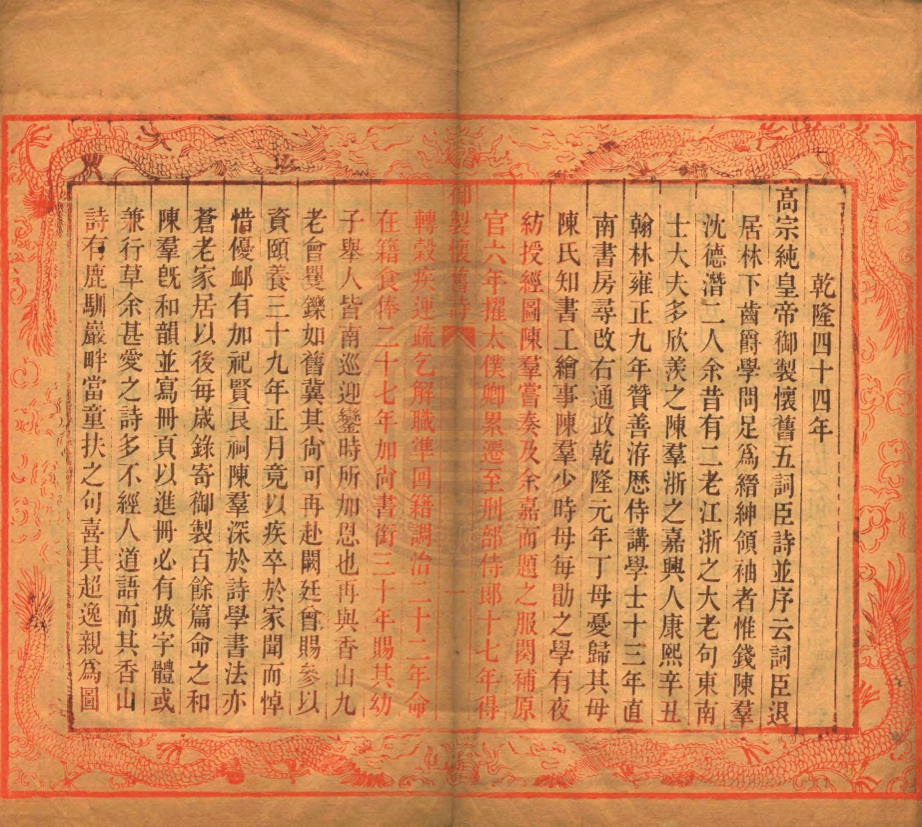 乾隆四十四年
高宗純皇帝御製懷舊五詞臣詩並序云詞臣退
居林下齒爵學問足為縉紳領袖者惟錢陳羣
沈德潛二人余昔有二老江浙之大老句東南
士大夫多欣羨之陳羣浙之嘉興人康熙辛丑
翰林雍正九年贊善洊歷侍講學士十三年直
南書房尋改右通政乾隆元年丁母憂歸其母
陳氏知書工繪事陳羣少時母每勖之學有夜
紡授經圖陳羣嘗奏及余嘉而題之服闋補原
官六年擢太僕卿累遷至刑部侍郎十七年得
御製懷舊詩
一
轉穀疾連疏乞解職準回籍調治二十二年命
在籍食俸二十七年加尚書銜三十年賜其幼
子舉人皆南巡迎鑾時所加恩也再與香山九
老會矍鑠如舊冀其尚可再赴闕廷曾賜參以
資頤養三十九年正月竟以疾卒於家聞而悼
惜優卹有加祀賢良祠陳羣深於詩學書法亦
蒼老家居以後每歲錄寄御製百餘篇命之和
陳羣旣和韻並寫冊頁以進冊必有跋字體或
兼行草余甚愛之詩多不經人道語而其香山
詩有鹿馴巖畔當童扶之句喜其超逸親為圖